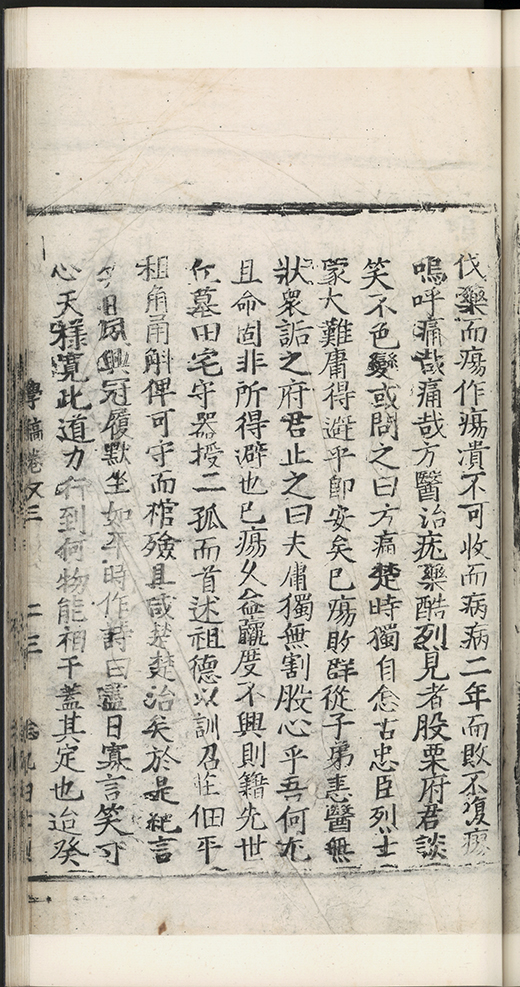 伐藥而瘍作瘍潰不可收而病病二年而敗不復瘳
嗚呼痛哉痛哉方醫治㽹藥酷烈見者股栗府君談
笑不色變或問之曰方痛楚時獨自念古忠臣烈士
蒙大難庸得避乎卽安矣已瘍敗群從子弟恚醫無
狀衆詬之府君止之曰夫庸獨無割股心乎吾何尤
且命固非所得避也已瘍久益羸度不興則籍先世
丘墓田宅守器授二孤而首述祖德以訓召莊佃平
租角甬斛俾可守而棺殮具咸楚楚治矣於是絶言
今日夙興冠履默坐如平時作詩曰盡日寡言笑寸
心天樣寬此道力行到何物能相干蓋其定也迨癸
學稿卷文三
二三